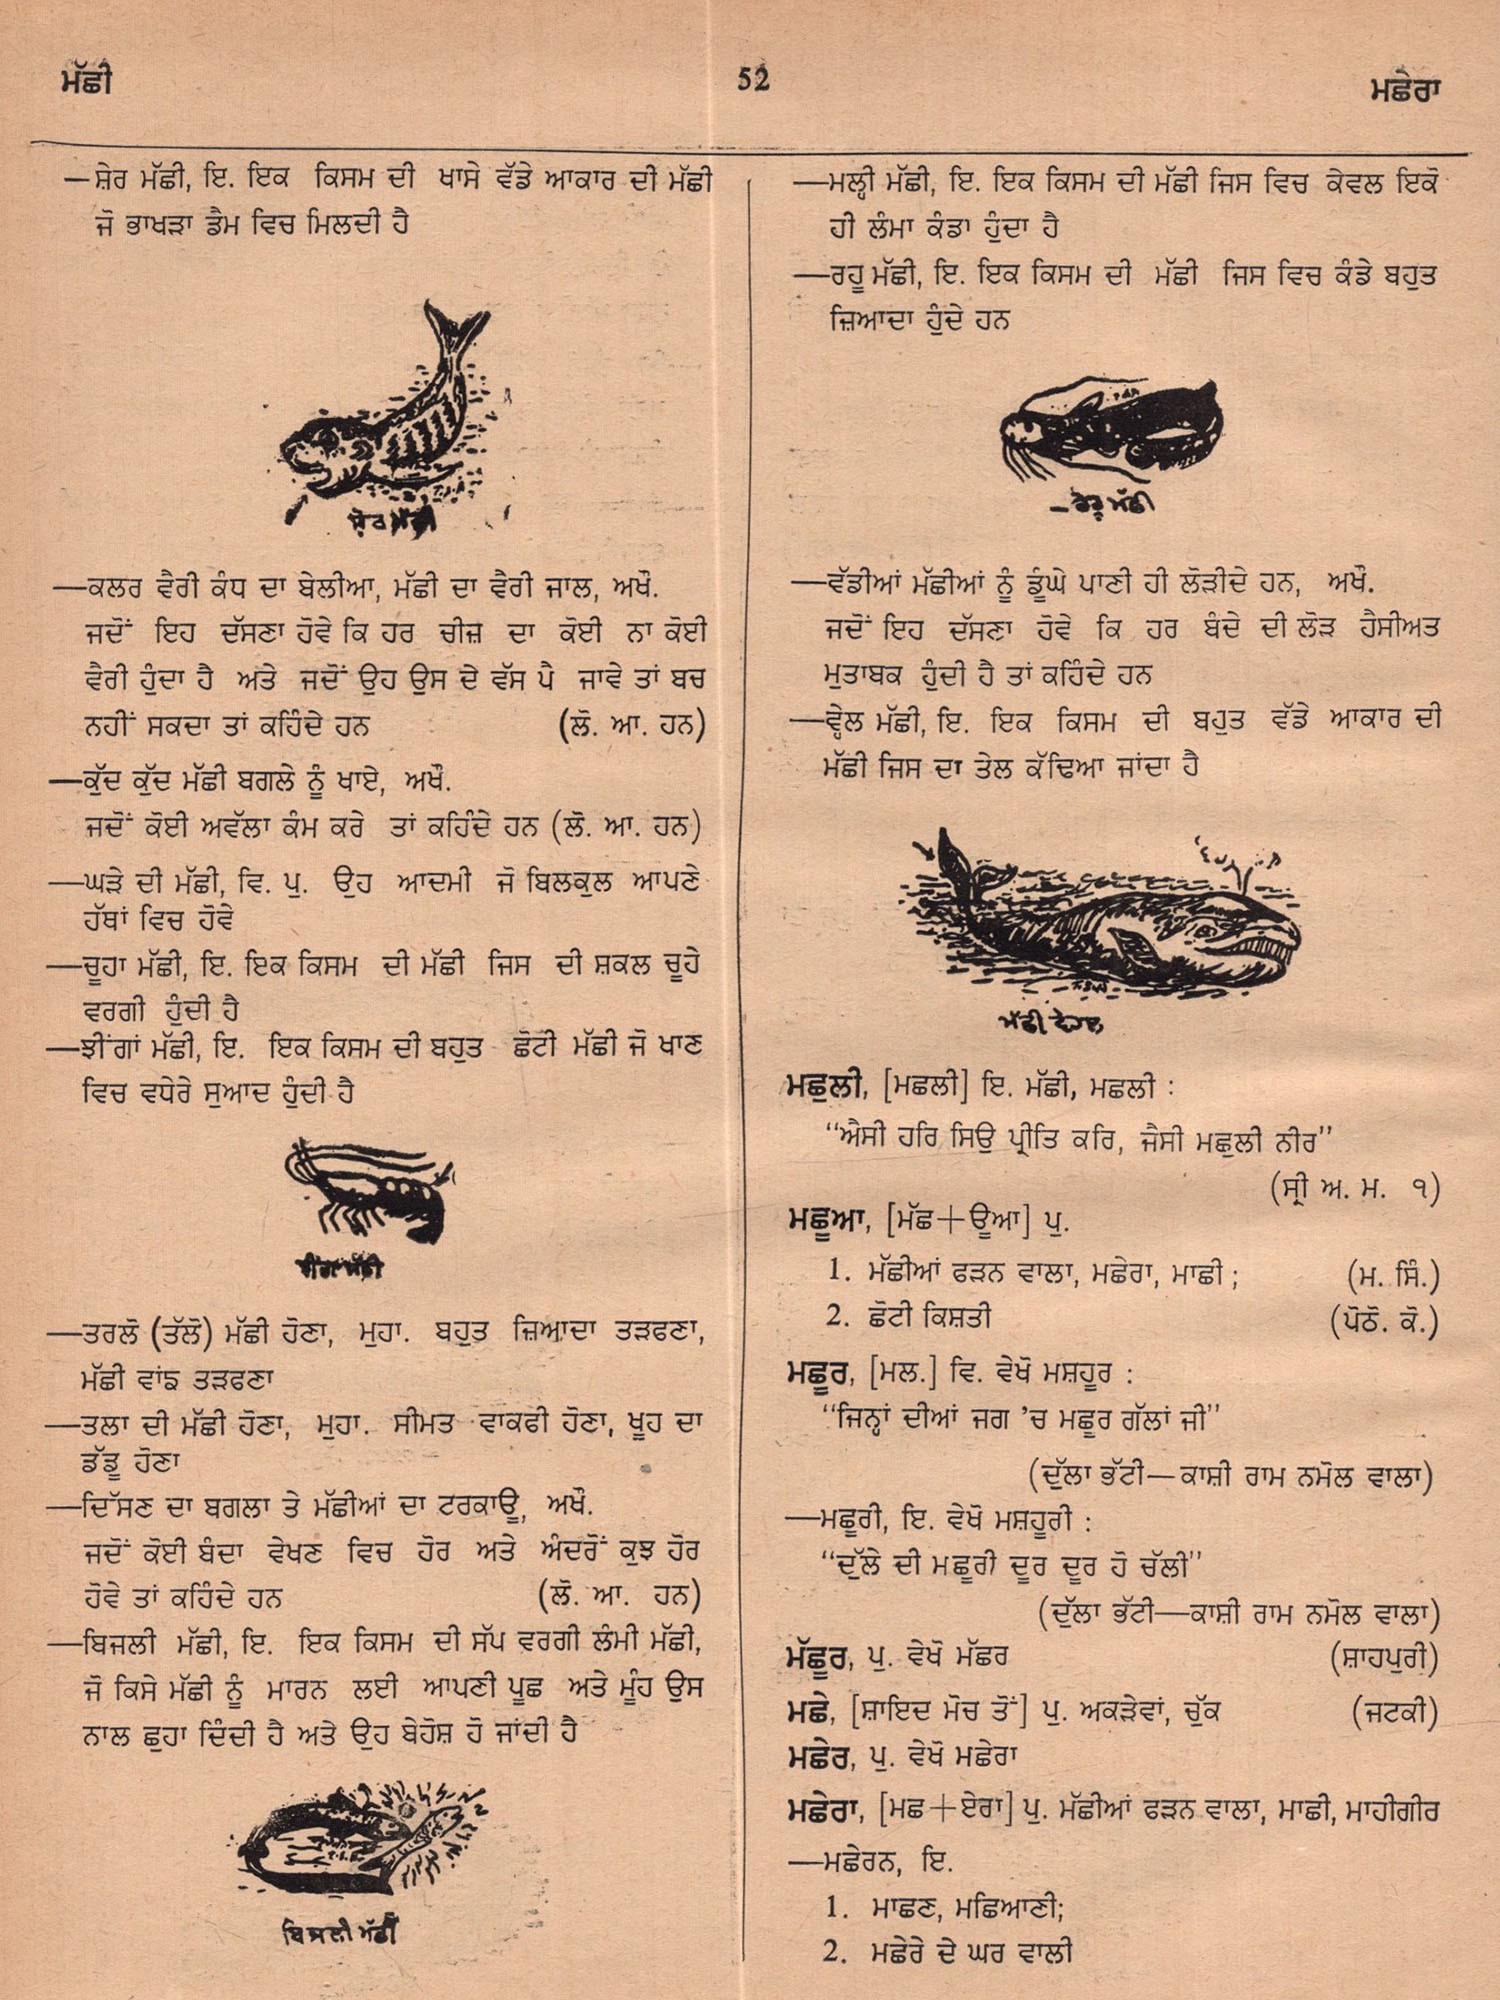 ਮੱਛੀ
52
ਮਛੇਰਾ
—ਸ਼ੇਰ ਮੱਛੀ, ਇ. ਇਕ ਕਿਸਮ ਦੀ ਖਾਸੇ ਵੱਡੇ ਆਕਾਰ ਦੀ ਮੱਛੀ
ਜੋ ਭਾਖੜਾ ਡੈਮ ਵਿਚ ਮਿਲਦੀ ਹੈ
ਸ਼ੇਰ ਮੱਛੀ
—ਕਲਰ ਵੈਰੀ ਕੰਧ ਦਾ ਬੇਲੀਆ, ਮੱਛੀ ਦਾ ਵੈਰੀ ਜਾਲ, ਅਖੌ.
ਜਦੋਂ ਇਹ ਦੱਸਣਾ ਹੋਵੇ ਕਿ ਹਰ ਚੀਜ਼ ਦਾ ਕੋਈ ਨਾ ਕੋਈ
ਵੈਰੀ ਹੁੰਦਾ ਹੈ ਅਤੇ ਜਦੋਂ ਉਹ ਉਸ ਦੇ ਵੱਸ ਪੈ ਜਾਵੇ ਤਾਂ ਬਚ
ਨਹੀਂ ਸਕਦਾ ਤਾਂ ਕਹਿੰਦੇ ਹਨ (ਲੋ. ਆ. ਹਨ)
—ਕੁੱਦ ਕੁੱਦ ਮੱਛੀ ਬਗਲੇ ਨੂੰ ਖਾਏ, ਅਖੌ.
ਜਦੋਂ ਕੋਈ ਅਵੱਲਾ ਕੰਮ ਕਰੇ ਤਾਂ ਕਹਿੰਦੇ ਹਨ (ਲੋ. ਆ. ਹਨ)
—ਘੜੇ ਦੀ ਮੱਛੀ, ਵਿ. ਪੁ. ਉਹ ਆਦਮੀ ਜੋ ਬਿਲਕੁਲ ਆਪਣੇ
ਹੱਥਾਂ ਵਿਚ ਹੋਵੇ
—ਚੂਹਾ ਮੱਛੀ, ਇ. ਇਕ ਕਿਸਮ ਦੀ ਮੱਛੀ ਜਿਸ ਦੀ ਸ਼ਕਲ ਚੂਹੇ
ਵਰਗੀ ਹੁੰਦੀ ਹੈ
—ਝੀਂਗਾਂ ਮੱਛੀ, ਇ. ਇਕ ਕਿਸਮ ਦੀ ਬਹੁਤ ਛੋਟੀ ਮੱਛੀ ਜੋ ਖਾਣ
ਵਿਚ ਵਧੇਰੇ ਸੁਆਦ ਹੁੰਦੀ ਹੈ
ਮੱਛੀ
—ਤਰਲੋ (ਤੱਲੋ) ਮੱਛੀ ਹੋਣਾ, ਮੁਹਾ. ਬਹੁਤ ਜ਼ਿਆਦਾ ਤੜਫਣਾ,
ਮੱਛੀ ਵਾਂਙ ਤੜਫਣਾ
—ਤਲਾ ਦੀ ਮੱਛੀ ਹੋਣਾ, ਮੁਹਾ. ਸੀਮਤ ਵਾਕਫੀ ਹੋਣਾ, ਖੂਹ ਦਾ
ਡੱਡੂ ਹੋਣਾ
—ਦਿੱਸਣ ਦਾ ਬਗਲਾ ਤੇ ਮੱਛੀਆਂ ਦਾ ਟਰਕਾਊ, ਅਖੌ.
ਜਦੋਂ ਕੋਈ ਬੰਦਾ ਵੇਖਣ ਵਿਚ ਹੋਰ ਅਤੇ ਅੰਦਰੋਂ ਕੁਝ ਹੋਰ
ਹੋਵੇ ਤਾਂ ਕਹਿੰਦੇ ਹਨ (ਲੋ. ਆ. ਹਨ)
—ਬਿਜਲੀ ਮੱਛੀ, ਇ. ਇਕ ਕਿਸਮ ਦੀ ਸੱਪ ਵਰਗੀ ਲੰਮੀ ਮੱਛੀ,
ਜੋ ਕਿਸੇ ਮੱਛੀ ਨੂੰ ਮਾਰਨ ਲਈ ਆਪਣੀ ਪੂਛ ਅਤੇ ਮੂੰਹ ਉਸ
ਨਾਲ ਛੁਹਾ ਦਿੰਦੀ ਹੈ ਅਤੇ ਉਹ ਬੇਹੋਸ਼ ਹੋ ਜਾਂਦੀ ਹੈ
ਬਿਜਲੀ ਮੱਛੀ
—ਮਲ੍ਹੀ ਮੱਛੀ, ਇ. ਇਕ ਕਿਸਮ ਦੀ ਮੱਛੀ ਜਿਸ ਵਿਚ ਕੇਵਲ ਇਕੋ
ਹੀ ਲੰਮਾ ਕੰਡਾ ਹੁੰਦਾ ਹੈ
—ਰਹੂ ਮੱਛੀ, ਇ. ਇਕ ਕਿਸਮ ਦੀ ਮੱਛੀ ਜਿਸ ਵਿਚ ਕੰਡੇ ਬਹੁਤ
ਜ਼ਿਆਦਾ ਹੁੰਦੇ ਹਨ
ਮੱਛੀ
—ਵੱਡੀਆਂ ਮੱਛੀਆਂ ਨੂੰ ਡੂੰਘੇ ਪਾਣੀ ਹੀ ਲੋੜੀਦੇ ਹਨ, ਅਖੌ.
ਜਦੋਂ ਇਹ ਦੱਸਣਾ ਹੋਵੇ ਕਿ ਹਰ ਬੰਦੇ ਦੀ ਲੋੜ ਹੈਸੀਅਤ
ਮੁਤਾਬਕ ਹੁੰਦੀ ਹੈ ਤਾਂ ਕਹਿੰਦੇ ਹਨ
—ਵ੍ਹੇਲ ਮੱਛੀ, ਇ. ਇਕ ਕਿਸਮ ਦੀ ਬਹੁਤ ਵੱਡੇ ਆਕਾਰ ਦੀ
ਮੱਛੀ ਜਿਸ ਦਾ ਤੇਲ ਕੱਢਿਆ ਜਾਂਦਾ ਹੈ
ਮੱਛੀ ਵੇਹਲ
ਮਛੁਲੀ, [ਮਛਲੀ] ਇ. ਮੱਛੀ, ਮਛਲੀ :
“ਐਸੀ ਹਰਿ ਸਿਉ ਪ੍ਰੀਤਿ ਕਰਿ, ਜੈਸੀ ਮਛੁਲੀ ਨੀਰ”
(ਸ੍ਰੀ ਅ. ਮ. ੧)
ਮਛੂਆ, [ਮੱਛ+ਊਆ] ਪੁ.
1. ਮੱਛੀਆਂ ਫੜਨ ਵਾਲਾ, ਮਛੇਰਾ, ਮਾਛੀ ; (ਮ. ਸਿੰ.)
2. ਛੋਟੀ ਕਿਸ਼ਤੀ (ਪੋਠੋ. ਕੋ.)
ਮਛੂਰ, [ਮਲ.] ਵਿ. ਵੇਖੋ ਮਸ਼ਹੂਰ :
“ਜਿਨ੍ਹਾਂ ਦੀਆਂ ਜਗ ’ਚ ਮਛੂਰ ਗੱਲਾਂ ਜੀ”
(ਦੁੱਲਾ ਭੱਟੀ—ਕਾਸ਼ੀ ਰਾਮ ਨਮੋਲ ਵਾਲਾ)
—ਮਛੂਰੀ, ਇ. ਵੇਖੋ ਮਸ਼ਹੂਰੀ :
“ਦੁੱਲੇ ਦੀ ਮਛੂਰੀ ਦੂਰ ਦੂਰ ਹੋ ਚੱਲੀ”
(ਦੁੱਲਾ ਭੱਟੀ—ਕਾਸ਼ੀ ਰਾਮ ਨਮੋਲ ਵਾਲਾ)
ਮੱਛੂਰ, ਪੁ. ਵੇਖੋ ਮੱਛਰ (ਸ਼ਾਹਪੁਰੀ)
ਮਛੇ, [ਸ਼ਾਇਦ ਮੋਚ ਤੋਂ] ਪੁ. ਅਕੜੇਵਾਂ, ਚੁੱਕ (ਜਟਕੀ)
ਮਛੇਰ, ਪੁ. ਵੇਖੋ ਮਛੇਰਾ
ਮਛੇਰਾ, [ਮਛ+ਏਰਾ] ਪੁ. ਮੱਛੀਆਂ ਫੜਨ ਵਾਲਾ, ਮਾਛੀ, ਮਾਹੀਗੀਰ
—ਮਛੇਰਨ, ਇ.
1. ਮਾਛਣ, ਮਛਿਆਣੀ;
2. ਮਛੇਰੇ ਦੇ ਘਰ ਵਾਲੀ